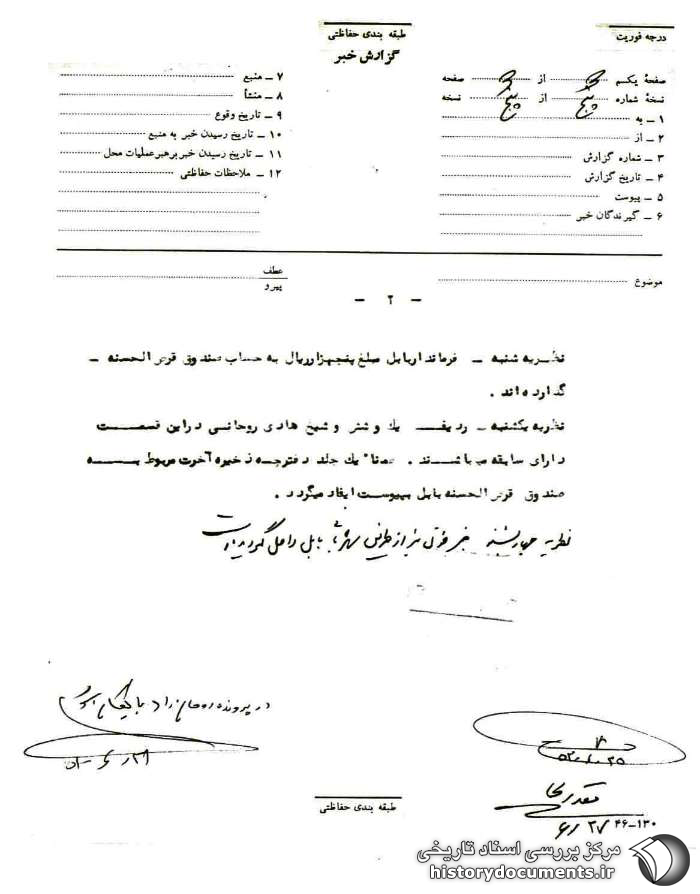 درجه فوریت
طبقه بندی حفاظتی
گزارش خبر
صفحهٔ یکم از صفحه
نسخهٔ شماره پنج از پنج نسخه
۱ ـ به
۲ ـ از
۳ ـ شماره گزارش
۴ ـ تاریخ گزارش
۵ ـ پیوست
۶ ـ گیرندگان خبر
۷ ـ منبع
۸ ـ منشأ
۹ ـ تاریخ وقوع
۱۰ ـ تاریخ رسیدن خبر به منبع
۱۱ ـ تاریخ رسیدن خبر برهبر عملیات محل
۱۲ ـ ملاحظات حفاظتی
موضوع
عطف
پیرو
ـ ۲ ـ
نظریه شنبه ـ فرماندار بابل مبلغ پنجهزارریال به حساب صندوق قرض الحسنه ـ
گذارده اند .
نظریه یکشنبه ـ ردیف یك و شش و شیخ هادی روحانی در این قسمت
دارای سابقه میباشند . ضمنا" یك جلد دفترچه ذخیره آخرت مربوط به
صندوق قرض الحسنه بابل بپیوست ایفاد میگردد .
نظریه چهارشنبه خبر فوق نیز از طریق بابل واصل گردیده است
در پرونده
طبقه بندی حفاظتی
۴۶-۱۳۰
۶/۲۷
مرکز بررسی اسناد تاریخی
historydocuments.ir